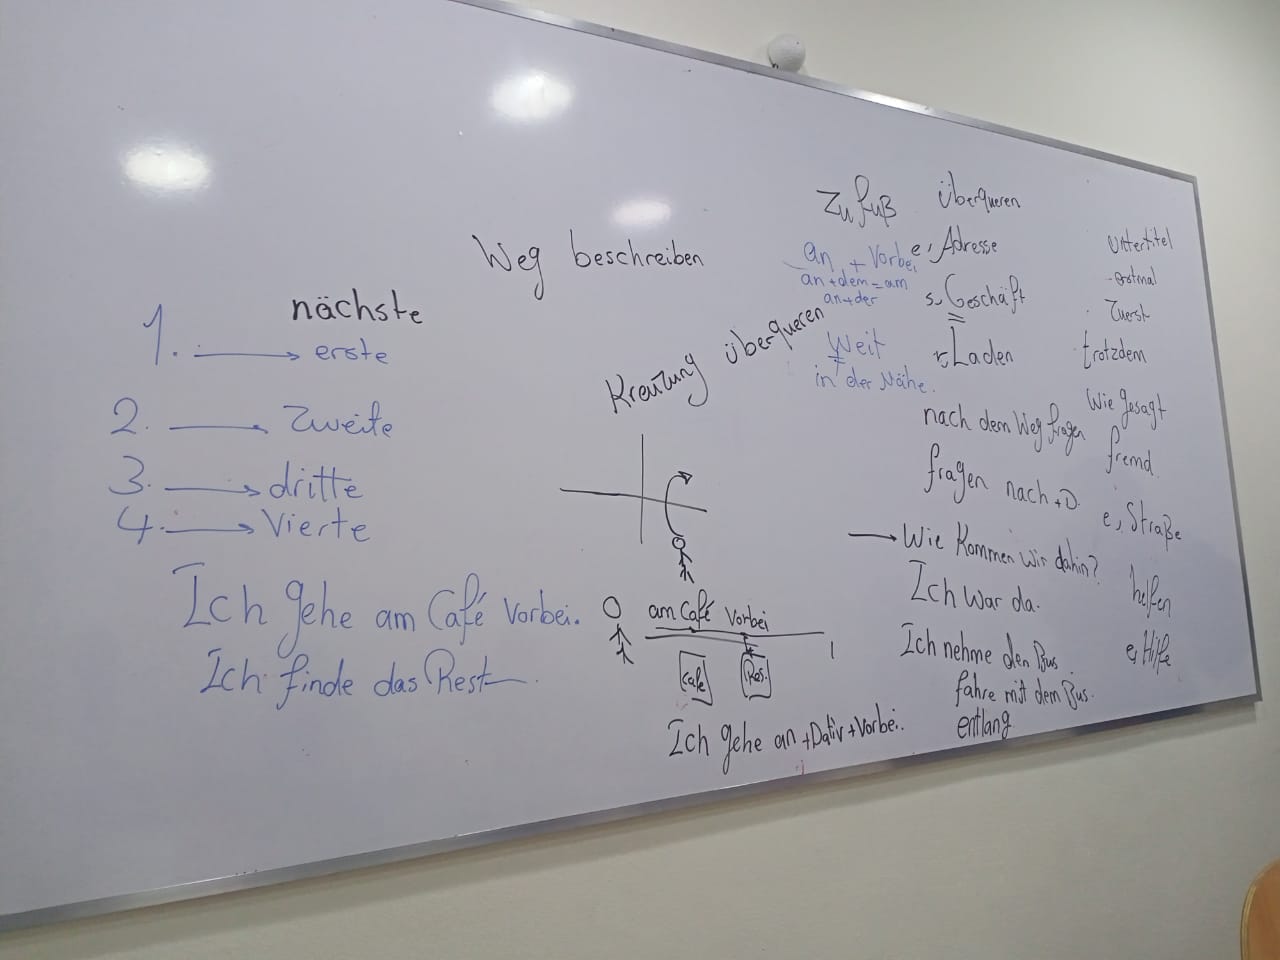 Weg beschreiben
nächste
1. → erste
2. → Zweite
3. → dritte
4. → Vierte
Ich gehe am Café vorbei.
Ich finde das Rest
Kreuzung überqueren
am Café vorbei
Cafe
Res.
Ich gehe an + Dativ + Vorbei.
Zu fuß
an + Vorbei
an + dem = am
an + der
Weit
in der Nähe.
Überqueren
e, Adresse
s, Geschäft
=
r, Laden
nach dem Weg fragen
fragen nach + D.
→ Wie kommen wir dahin?
Ich war da.
Ich nehme den Bus
fahre mit dem Bus.
entlang
Untertitel
erstmal
Zuerst
trotzdem
Wie gesagt
fremd
e, Straße
helfen
e, Hilfe